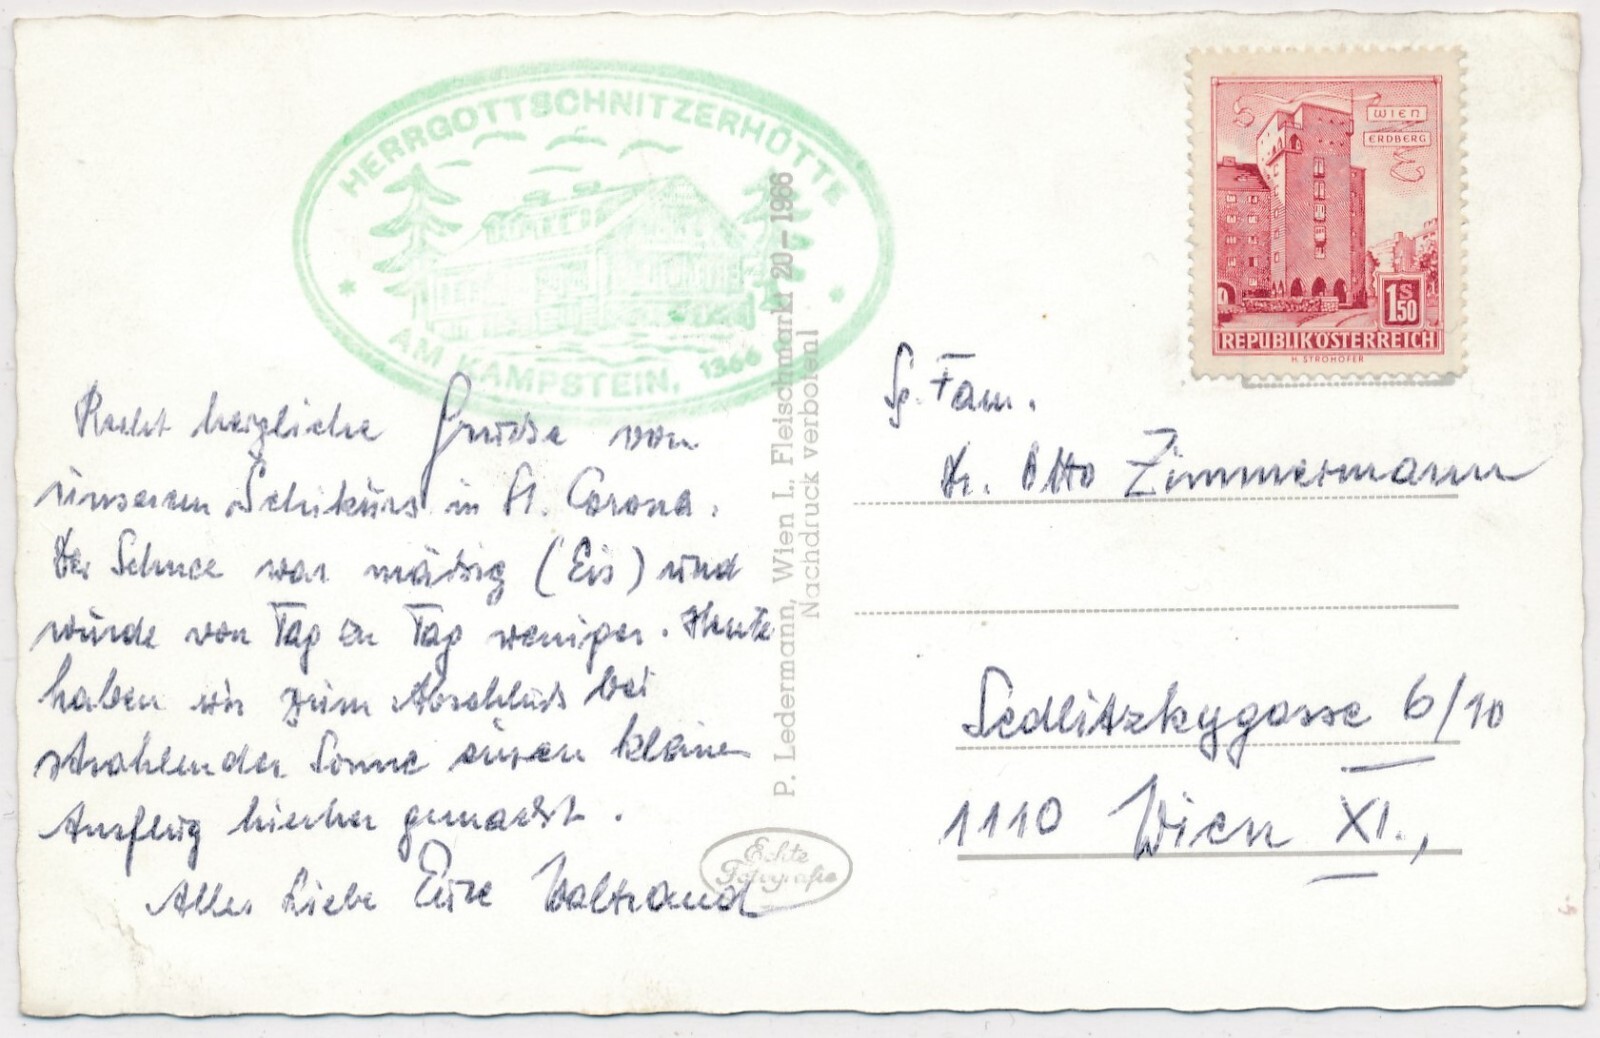 HERRGOTTSCHNITZERHÜTTE
AM KAMPSTEIN, 1366
Recht herzliche Grüsse von
unserem Schikurs in St. Corona.
Der Schnee war mäßig (Eis) und
wurde von Tag zu Tag weniger. Heute
haben wir zum Abschluss bei
strahlender Sonne einen kleinen
Ausflug hierher gemacht.
Alles Liebe Eure Waltraud
P. Ledermann, Wien I., Fleischmarkt 20 – 1966
Nachdruck verboten!
Echte
Fotografie
WIEN
ERDBERG
1 S 50
REPUBLIK ÖSTERREICH
H. STROHOFER
Fam.
Dr. Otto Zimmermann
Sedlitzkygasse 6/10
1110 Wien XI.,